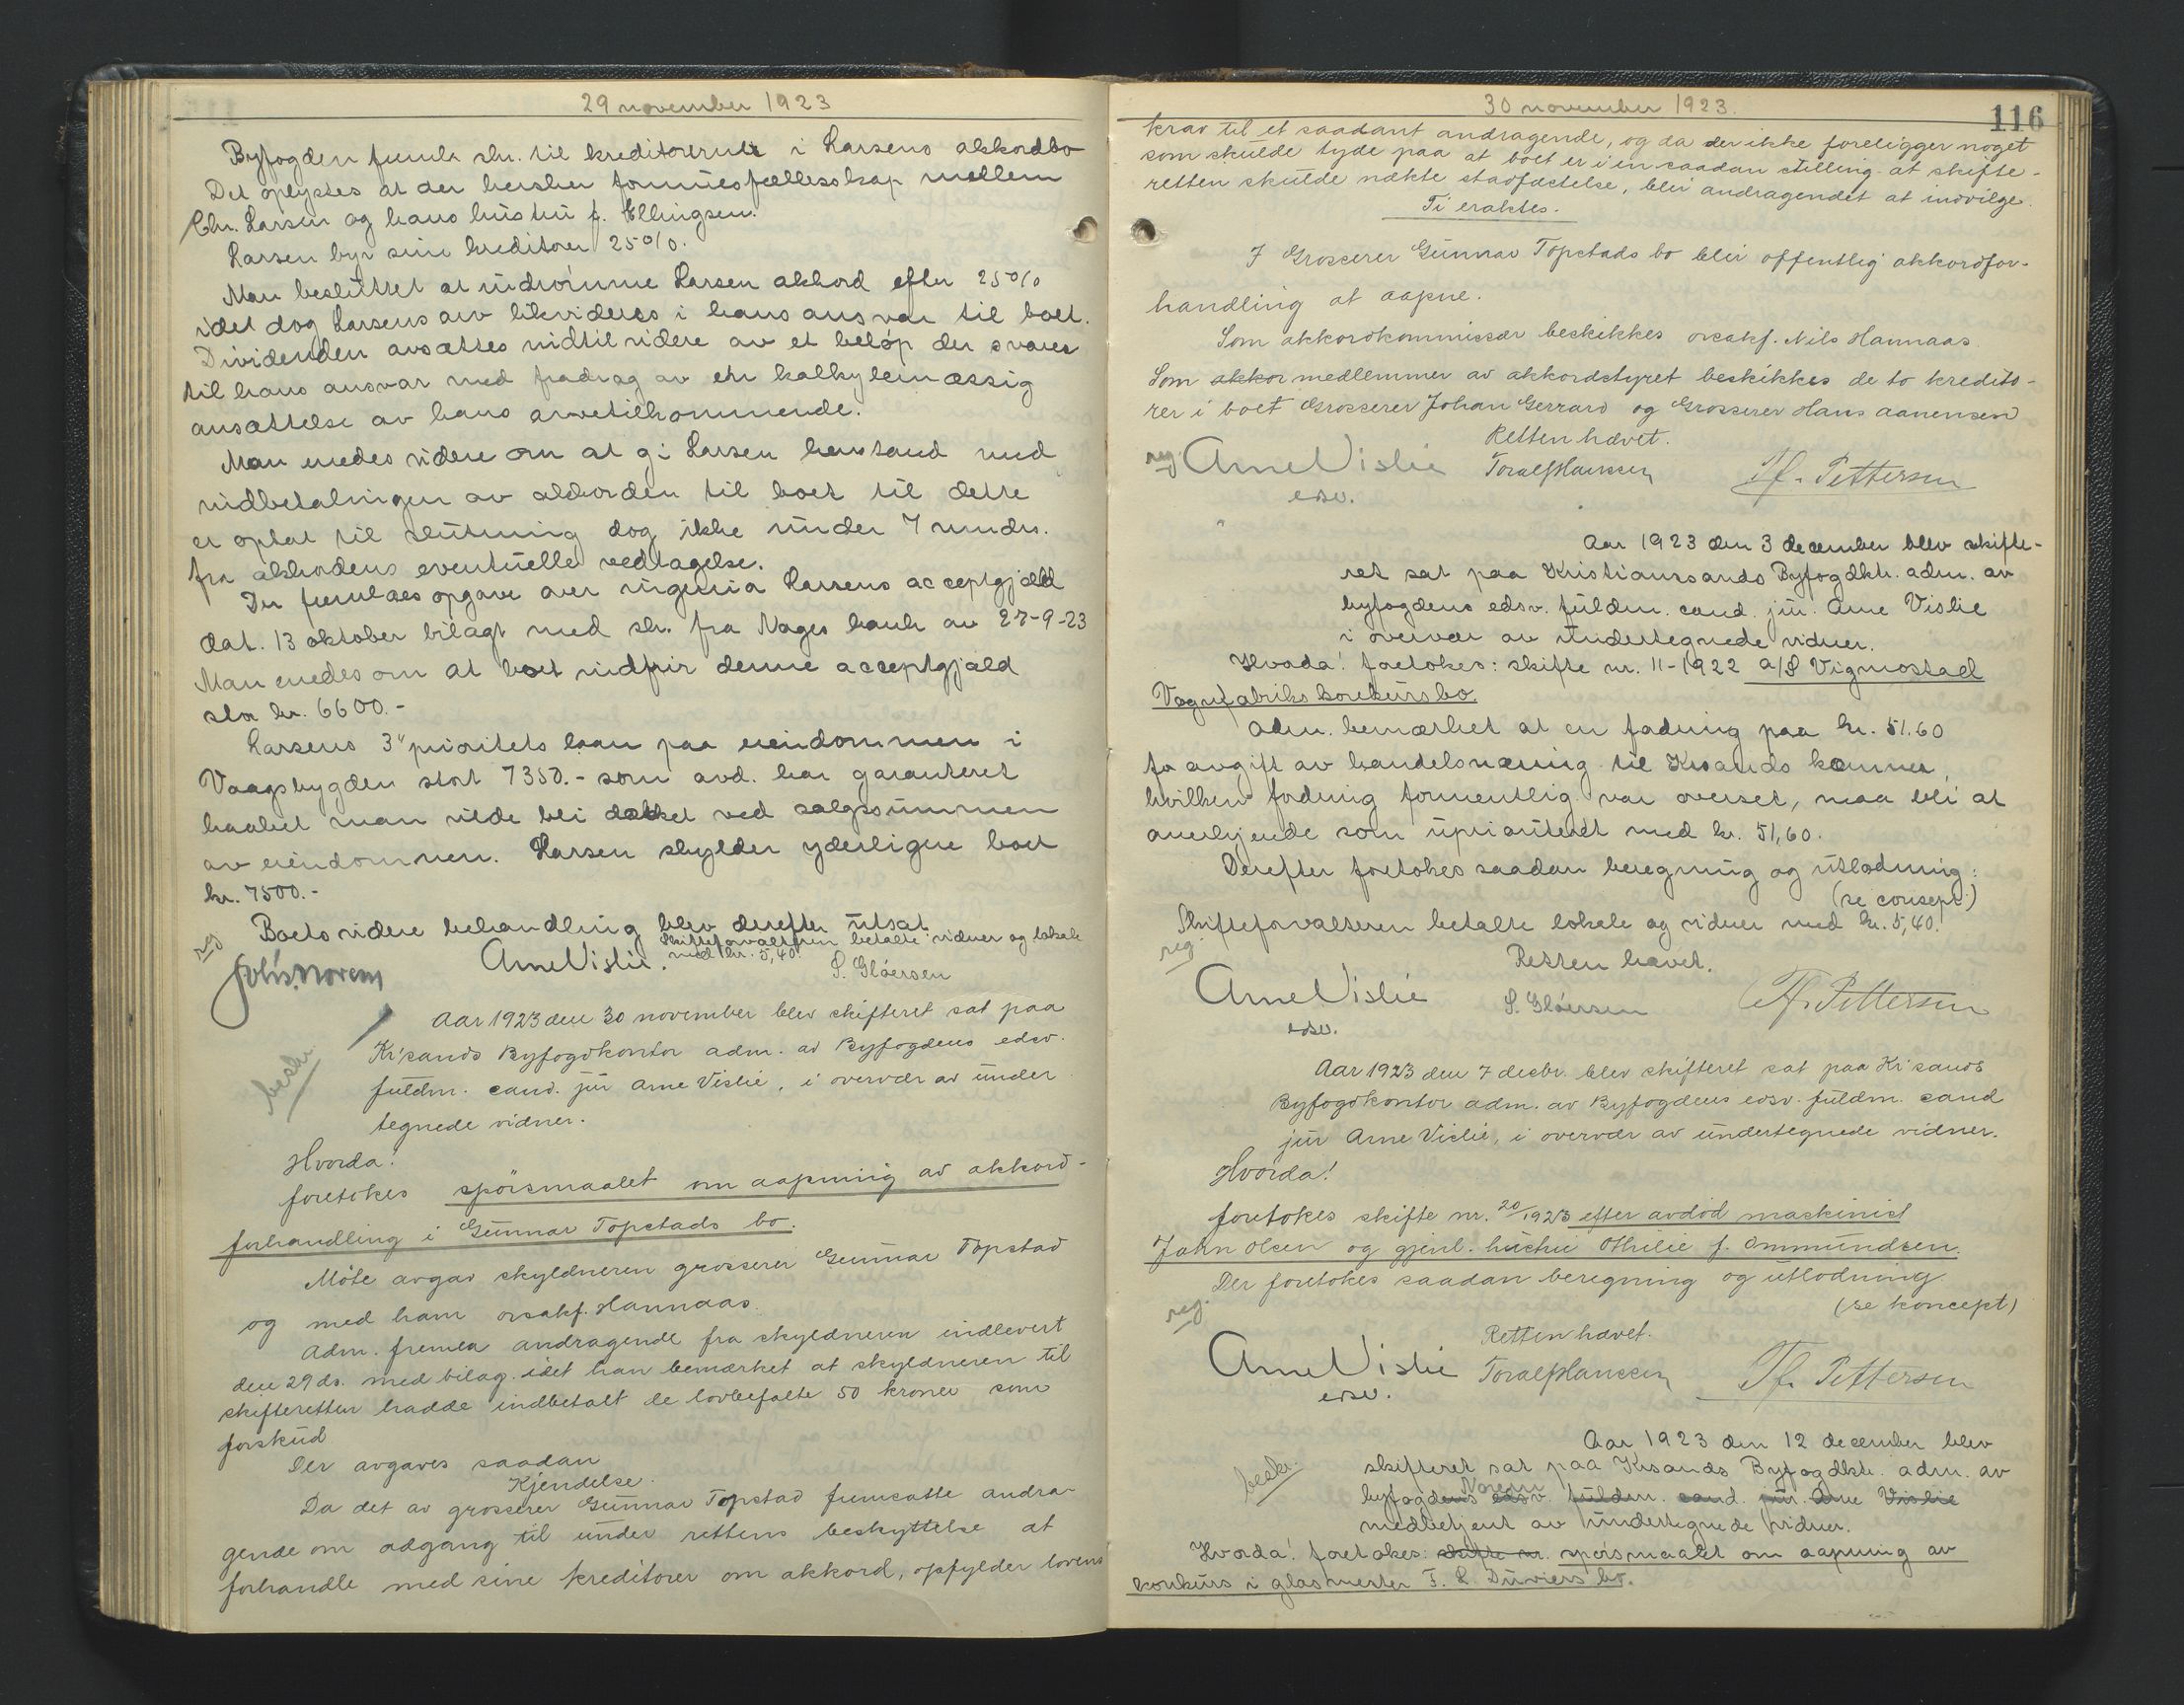 29 november 1923
Byfogden freml. skr. til kreditorerne i Larsens akkordbo
Det oplystes at der hersker formuesfællesskap mellem
Chr. Larsen og hans hustru f. Ellingsen.
Larsen byr sine kreditorer 25%.
Man besluttet at indrömme Larsen akkord efter 25%
idet dog Larsens arv likvideres i hans ansvar til boet.
Dividenden avsættes indtil videre av et beløp der svarer
til hans ansvar med fradrag av en kalkylemæssig
ansættelse av hans arvetilkommende.
Man enedes videre om at gi Larsen henstand med
indbetalingen av akkorden til boet til dette
er optat til slutning dog ikke under 7 mndr.
fra akkordens eventuelle vedtagelse.
Der fremlaes opgave over ingeniör Larsens acceptgjæld
dat. 13 oktober bilagt med skr. fra Nages bank av 27-9-23
Man enedes om at boet indfrir denne acceptgjæld
stor kr. 6600.-
Larsens 3" prioritets laan paa eiendommen i
Vaagsbygden stort 7350.- som avd. har garanteret
haabet man vilde bli dækket ved salgssummen
av eiendommen. Larsen skylder yderligere boet
kr. 7500.-
Boets videre behandling blev derefter utsat.
Skifteforvalteren betalte vidner og lokale
med kr. 5,40.
reg
Johs. Norem Arne Vislie. S. Glöersen
Aar 1923 den 30 november blev skifteret sat paa
Kr'sands Byfogdkontor adm. av Byfogdens edsv.
beskr.
fuldm. cand. jur Arne Vislie, i overvær av under
tegnede vidner.
Hvorda!
foretokes spörsmaalet om aapning av akkord-
forhandling i Gunnar Topstads bo.
Möte avgav skyldneren grosserer Gunnar Topstad
og med ham orsakf. Hannaas.
Adm. fremla andragende fra skyldneren indlevert
den 29 ds. med bilag. idet han bemærket at skyldneren til
skifteretten hadde indbetalt de lovbefalte 50 kroner som
forskud
Der avgaves saadan
Kjendelse.
Da det av grosserer Gunnar Topstad fremsatte andra-
gende om adgang til under rettens beskyttelse at
forhandle med sine kreditorer om akkord, opfylder lovens
30 november 1923.
116
krav til et saadant andragende, og da der ikke foreligger noget
som skulde tyde paa at boet er i en saadan stilling at skifte-
retten skulde nækte stadfæstelse, blir andragendet at indvilge.
Ti eraktes.
I Grosserer Gunnar Topstads bo blir offentlig akkordfor-
handling at aapne.
Som akkordkommissær beskikkes orsakf. Nils Hannaas.
Som akkor medlemmer av akkordstyret beskikkes de to kredito-
rer i boet Grosserer Johan Gerrard og Grosserer Hans Aanensen
Retten hævet.
reg Arne Vislie Toralf Hanssen Th. Pettersen
edsv.
Aar 1923 den 3 december blev skifte-
ret sat paa Kristianssands Byfogdktr. adm. av
byfogdens edsv. fuldm. cand. jur. Arne Vislie
i overvær av undertegnede vidner.
Hvorda! foretokes: skifte nr. 11-1922 A/S Vigmostad
Vognfabriks konkursbo.
Adm. bemærket at en fodring paa kr. 51.60
for avgift av handelsnæring til Krsands kæmner,
hvilken fodring formentlig var overset, maa bli at
anerkjende som uprioriteret med kr. 51,60.
Derefter foretokes saadan beregning og utlodning:
(se consept)
Skifteforvalteren betalte lokale og vidner med kr. 5,40.
reg. Retten hævet.
Arne Vislie S. Glöersen Th. Pettersen
edsv.
Aar 1923 den 7 decbr. blev skifteret sat paa Kr'sands
Byfogdkontor adm. av Byfogdens edsv. fuldm. cand
jur Arne Vislie, i overvær av undertegnede vidner.
Hvorda!
foretokes skifte nr. 20/1923 efter avdöd maskinist
John Olsen og gjenl. hustru Othilie f. Ommundsen.
Der foretokes saadan beregning og utlodning
(se koncept)
reg. Retten hævet.
Arne Vislie Toralf Hanssen Th. Pettersen
edsv.
Aar 1923 den 12 december blev
beskr.
skifteret sat paa Krsands Byfogdktr. adm. av
Norem
byfogdens edsv. fuldm. cand. jur. Arne Vislie
medbetjent av undertegnede vidner.
Hvorda! foretokes: skifte nr. spörsmaalet om aapning av
konkurs i glasmester F. L. Duviers bo.